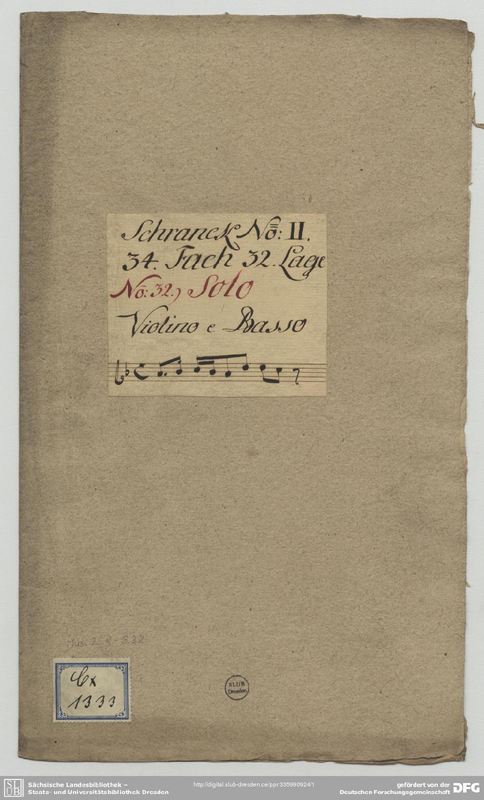 Schranck No: II.
34. Fach 32. Lage
No: 32.) Solo
Violino e Basso
Cx
1333
SLUB
Dresden
SLUB
Sächsische Landesbibliothek –
Staats- und Universitätsbibliothek Dresden
http://digital.slub-dresden.de/ppn335990924/1
gefördert von der
Deutschen Forschungsgemeinschaft
DFG